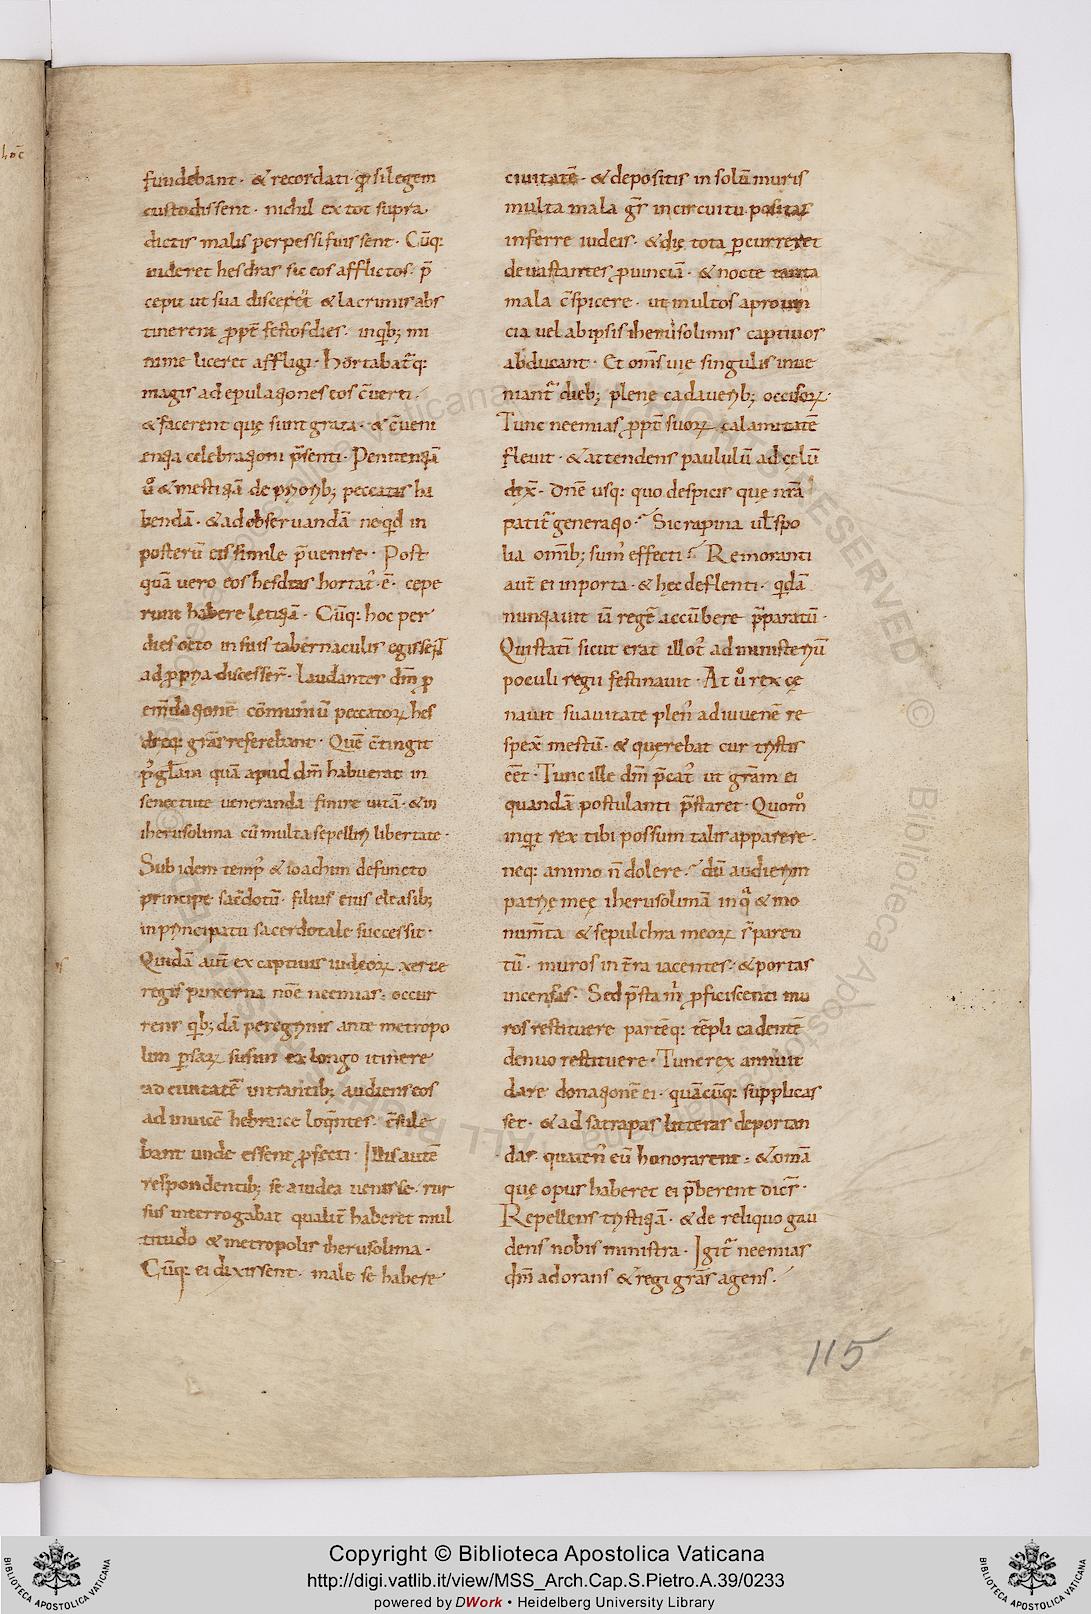 fundebant · & recordati · ꝙ si legem
custodissent · nichil ex tot supra
dictis malis perpessi fuissent · Cūq:
uideret hesdras sic eos afflictos · p̄
cepit ut sua discerēt & lacrimis abs
tinerent ꝓpt̄ festos dies · in qb; mi
nime liceret affligi · Hortabat᷑q:
magis ad epulationes eos c̄uerti ·
& facerent quę sunt grata · & c̄ueni
entia celebrationi p̄senti · Penitentiā
u͛o & mestitiā de priorib; peccatis ha
bendā · & ad obseruandā ne qd in
posterū eis simile p̄uenire · Post
quā uero eos hesdras hortat᷒ · ē · cepe
runt habere letitiā · Cūq: hoc per
dies octo in suis tabernaculis egissent
ad ꝓpria discesser̄ · laudantes dm̄ ꝓ
em̄dationē cōmuniū peccatoꝝ hes
dreq: grās referebant · Quē c̄tingit
p᷒ gl̄am quā apud dm̄ habuerat in
senectute ueneranda finire uitā · & in
iherusolima cū multa sepelliri libertate ·
Sub idem temp᷒ & ioachim defuncto
principe sac̄dotū · filius eius eleasib;
in principatu sacerdotale successit ·
Quidā aut̄ ex captiuis iudeoꝝ xerse
regis pincerna noē neemias · occur
rens qb; dā peregrinis ante metropo
lim ꝑsaꝝ susim ex longo itinere
ad ciuitatē intrantib; audiens eos
ad inuicē hebraice loq̄ntes · c̄sule
bant unde essent ꝓfecti · Illis autē
respondentib; se a iudea uenisse · rur
sus interrogabat qualit̄ haberet mul
titudo & metropolis iherusolima ·
Cūq: ei dixissent · male se habere
ciuitatē · & depositis in solū muris
multa mala g̅s in circuitu positas
inferre iudeis · & dię tota ꝑcurreret
deuastantes ꝓuinciā · & nocte tanta
mala c̄spicere · ut multos a prouin
cia uel ab ipsis iherusolimis captiuos
abducant · Et om̄s uię singulis inue
niant᷑ dieb; plene cadauerib; occisoꝝ ·
Tunc neemias ꝓpt̄ suoꝝ calamitatē
fleuit · & attendens paululū ad celū
dix̄ · Dn̄e usq: quo despicis quę nr̄a
patit᷑ generatio · Sic rapina ul̄ spo
lia om̄ib; sum᷒ effecti · Remoranti
aut̄ ei in porta · & hęc deflenti · qdā
nuntiauit iā regē accūbere p̄paratū ·
Qui statī sicut erat illot᷒ ad ministeriū
poculi regii festinauit · At u͛o rex cę
nauit suauitate plen᷒ ad iuuenē re
spex̄ mestū · & querebat cur tristis
eēt · Tunc ille dm̄ p̄cat᷒ ut grām ei
quandā postulanti p̄staret · Quom͛o
inqit rex tibi possum talis apparere ·
neq: animo n̄ dolere · dū audierim
patrię meę iherusolimā in qͣ & mo
num̄ta & sepulchra meoꝝ s̄t paren
tū · muros in t̄ra iacentes · & portas
incensas · Sed p̄sta m̄ ꝓficiscenti mu
ros restituere partēq: tēpli cadentē
denuo restituere · Tunc rex annuit
dare donationē ei · quācūq: supplicas
set · & ad satrapas litteras deportan
das · quaten᷒ eū honorarent · & omā
quę opus haberet ei p̄berent dicēs ·
Repellens tristitiā · & de reliquo gau
dens nobis ministra · Igit᷑ neemias
dm̄ adorans & regi grās agens ·
115
Copyright © Biblioteca Apostolica Vaticana
http://digi.vatlib.it/view/MSS_Arch.Cap.S.Pietro.A.39/0233
powered by DWork • Heidelberg University Library